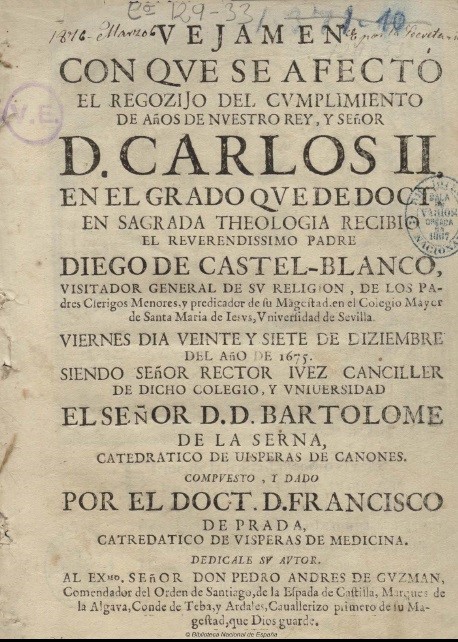 1876-Marzo6
VEJAMEN
CON QVE SE AFECTÒ
EL REGOZIJO DEL CVMPLIMIENTO
DE Años DE NVESTRO REY, Y SEñOR
D. CARLOS II.
EN EL GRADO QVE DE DOCT.
EN SAGRADA THEOLOGIA RECIBIO
EL REVERENDISSIMO PADRE
DIEGO DE CASTEL-BLANCO,
VISITADOR GENERAL DE SV RELIGION, DE LOS PA-
dres Clerigos Menores, y predicador de su Magestad, en el Colegio Mayor
de Santa Maria de Iesvs, Vniversidad de Sevilla.
VIERNES DIA VEINTE Y SIETE DE DIZIEMBRE
DEL Año DE 1675.
SIENDO SEñOR RECTOR IVEZ CANCILLER
DE DICHO COLEGIO, Y VNIUERSIDAD
EL SEñOR D.D. BARTOLOME
DE LA SERNA,
CATEDRATICO DE UISPERAS DE CANONES.
COMPVESTO, Y DADO
POR EL DOCT. D. FRANCISCO
DE PRADA,
CATREDATICO DE VISPERAS DE MEDICINA.
DEDICALE SV AVTOR.
AL EXmo. SEñOR DON PEDRO ANDRES DE GVZMAN,
Comendador del Orden de Santiago, de la Espada de Castilla, Marques de
la Algava, Conde de Teba, y Ardales, Cauallerizo primero de su Ma-
gestad, que Dios guarde.
V.E.
SALA
DE
VARIOS
1867
NACIONAL
© Biblioteca Nacional de España